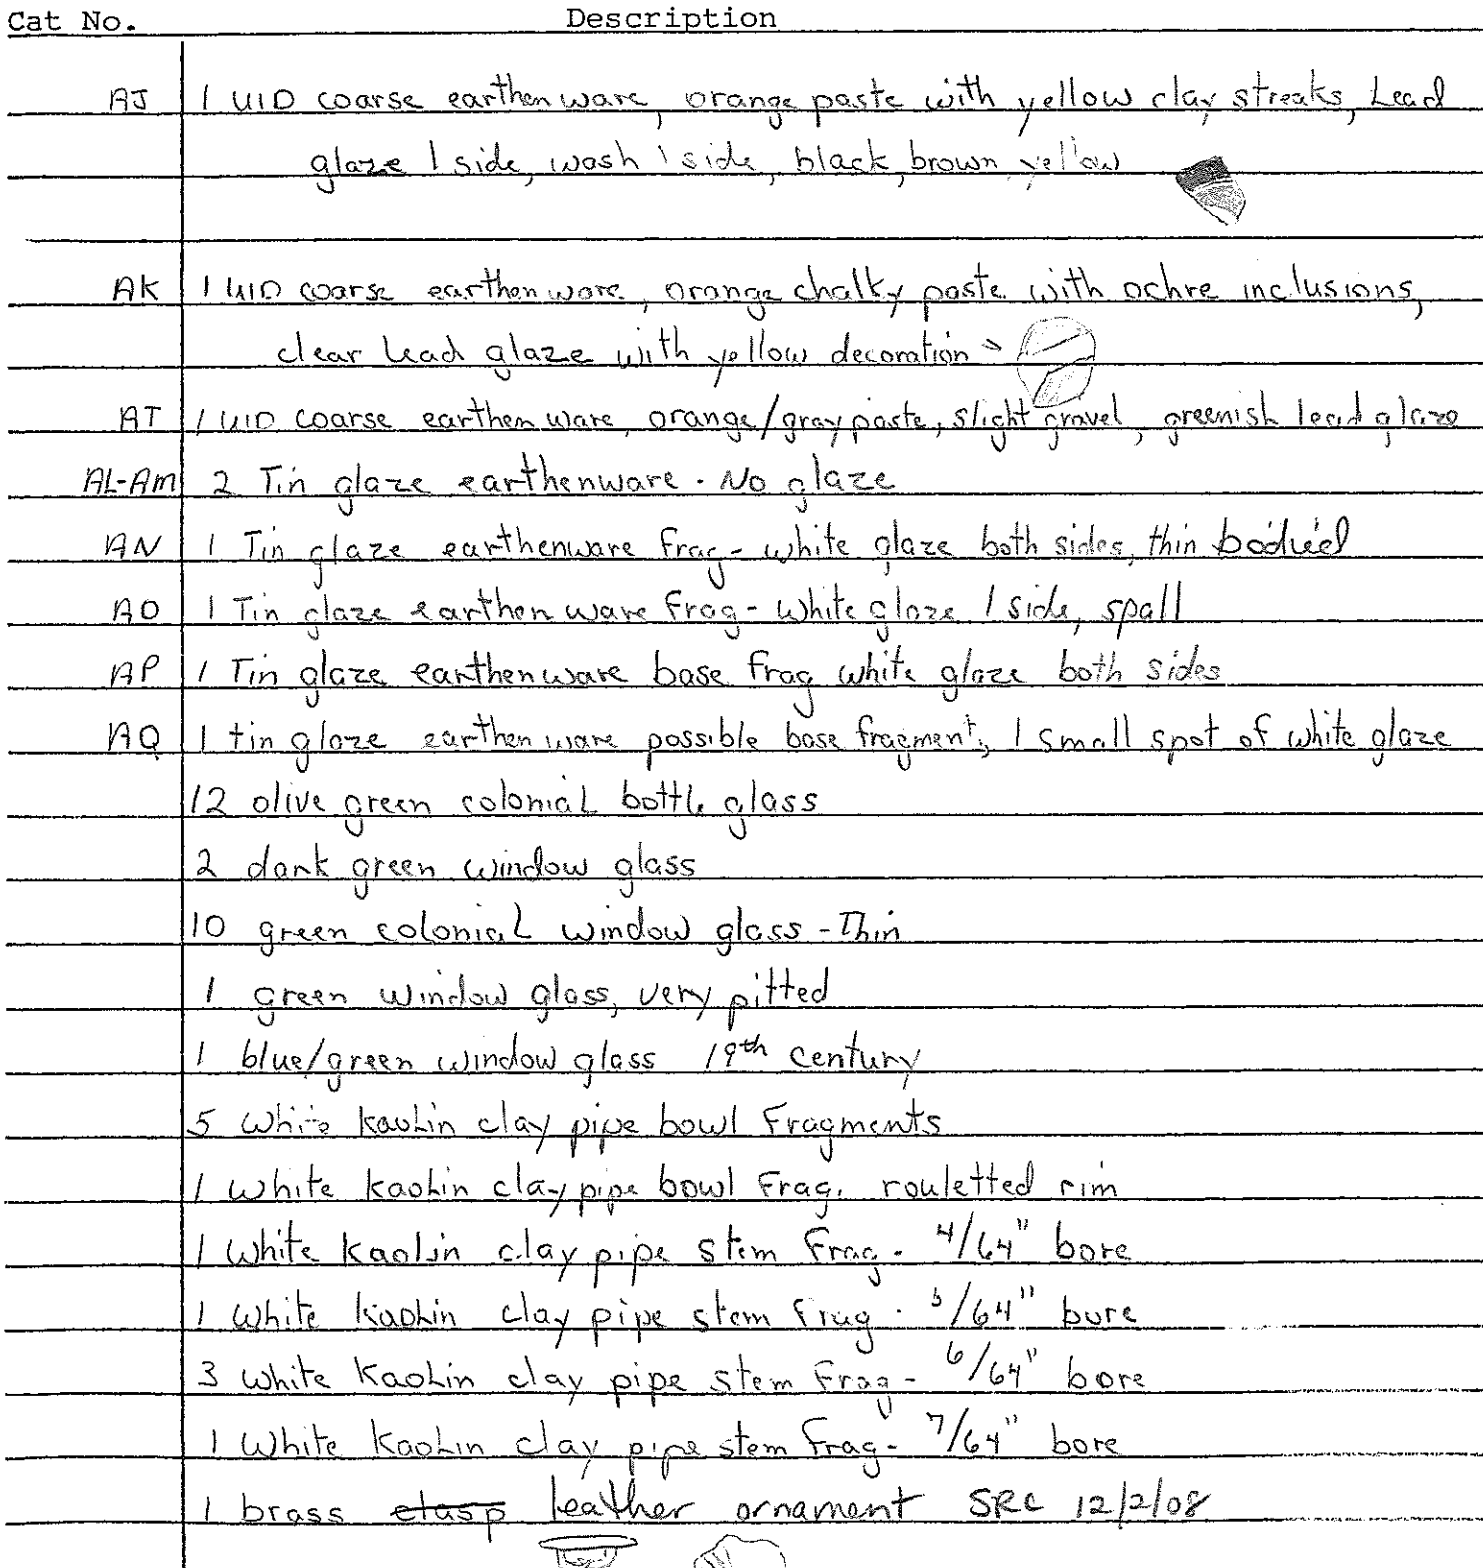 Cat No. Description
AJ 1 UID coarse earthenware, orange paste with yellow clay streaks, Lead
glaze 1 side, wash 1 side, black, brown, yellow
AK 1 UID coarse earthenware, orange chalky paste with ochre inclusions,
clear lead glaze with yellow decoration
AT 1 UID coarse earthenware, orange/gray paste, slight gravel, greenish lead glaze
AL-AM 2 Tin glaze earthenware - No glaze
AN 1 Tin glaze earthenware frag - white glaze both sides, thin bodied
AO 1 Tin glaze earthenware frag - white glaze 1 side, spall
AP 1 Tin glaze earthenware base frag white glaze both sides
AQ 1 tin glaze earthenware possible base fragment, 1 small spot of white glaze
12 olive green colonial bottle glass
2 dark green window glass
10 green colonial window glass - Thin
1 green window glass, very pitted
1 blue/green window glass 19th century
5 white kaolin clay pipe bowl fragments
1 white kaolin clay pipe bowl frag. rouletted rim
1 white kaolin clay pipe stem frag - 4/64" bore
1 white kaolin clay pipe stem frag - 5/64" bore
3 white kaolin clay pipe stem frag - 6/64" bore
1 white kaolin clay pipe stem frag - 7/64" bore
1 brass clasp leather ornament SRC 12/2/08